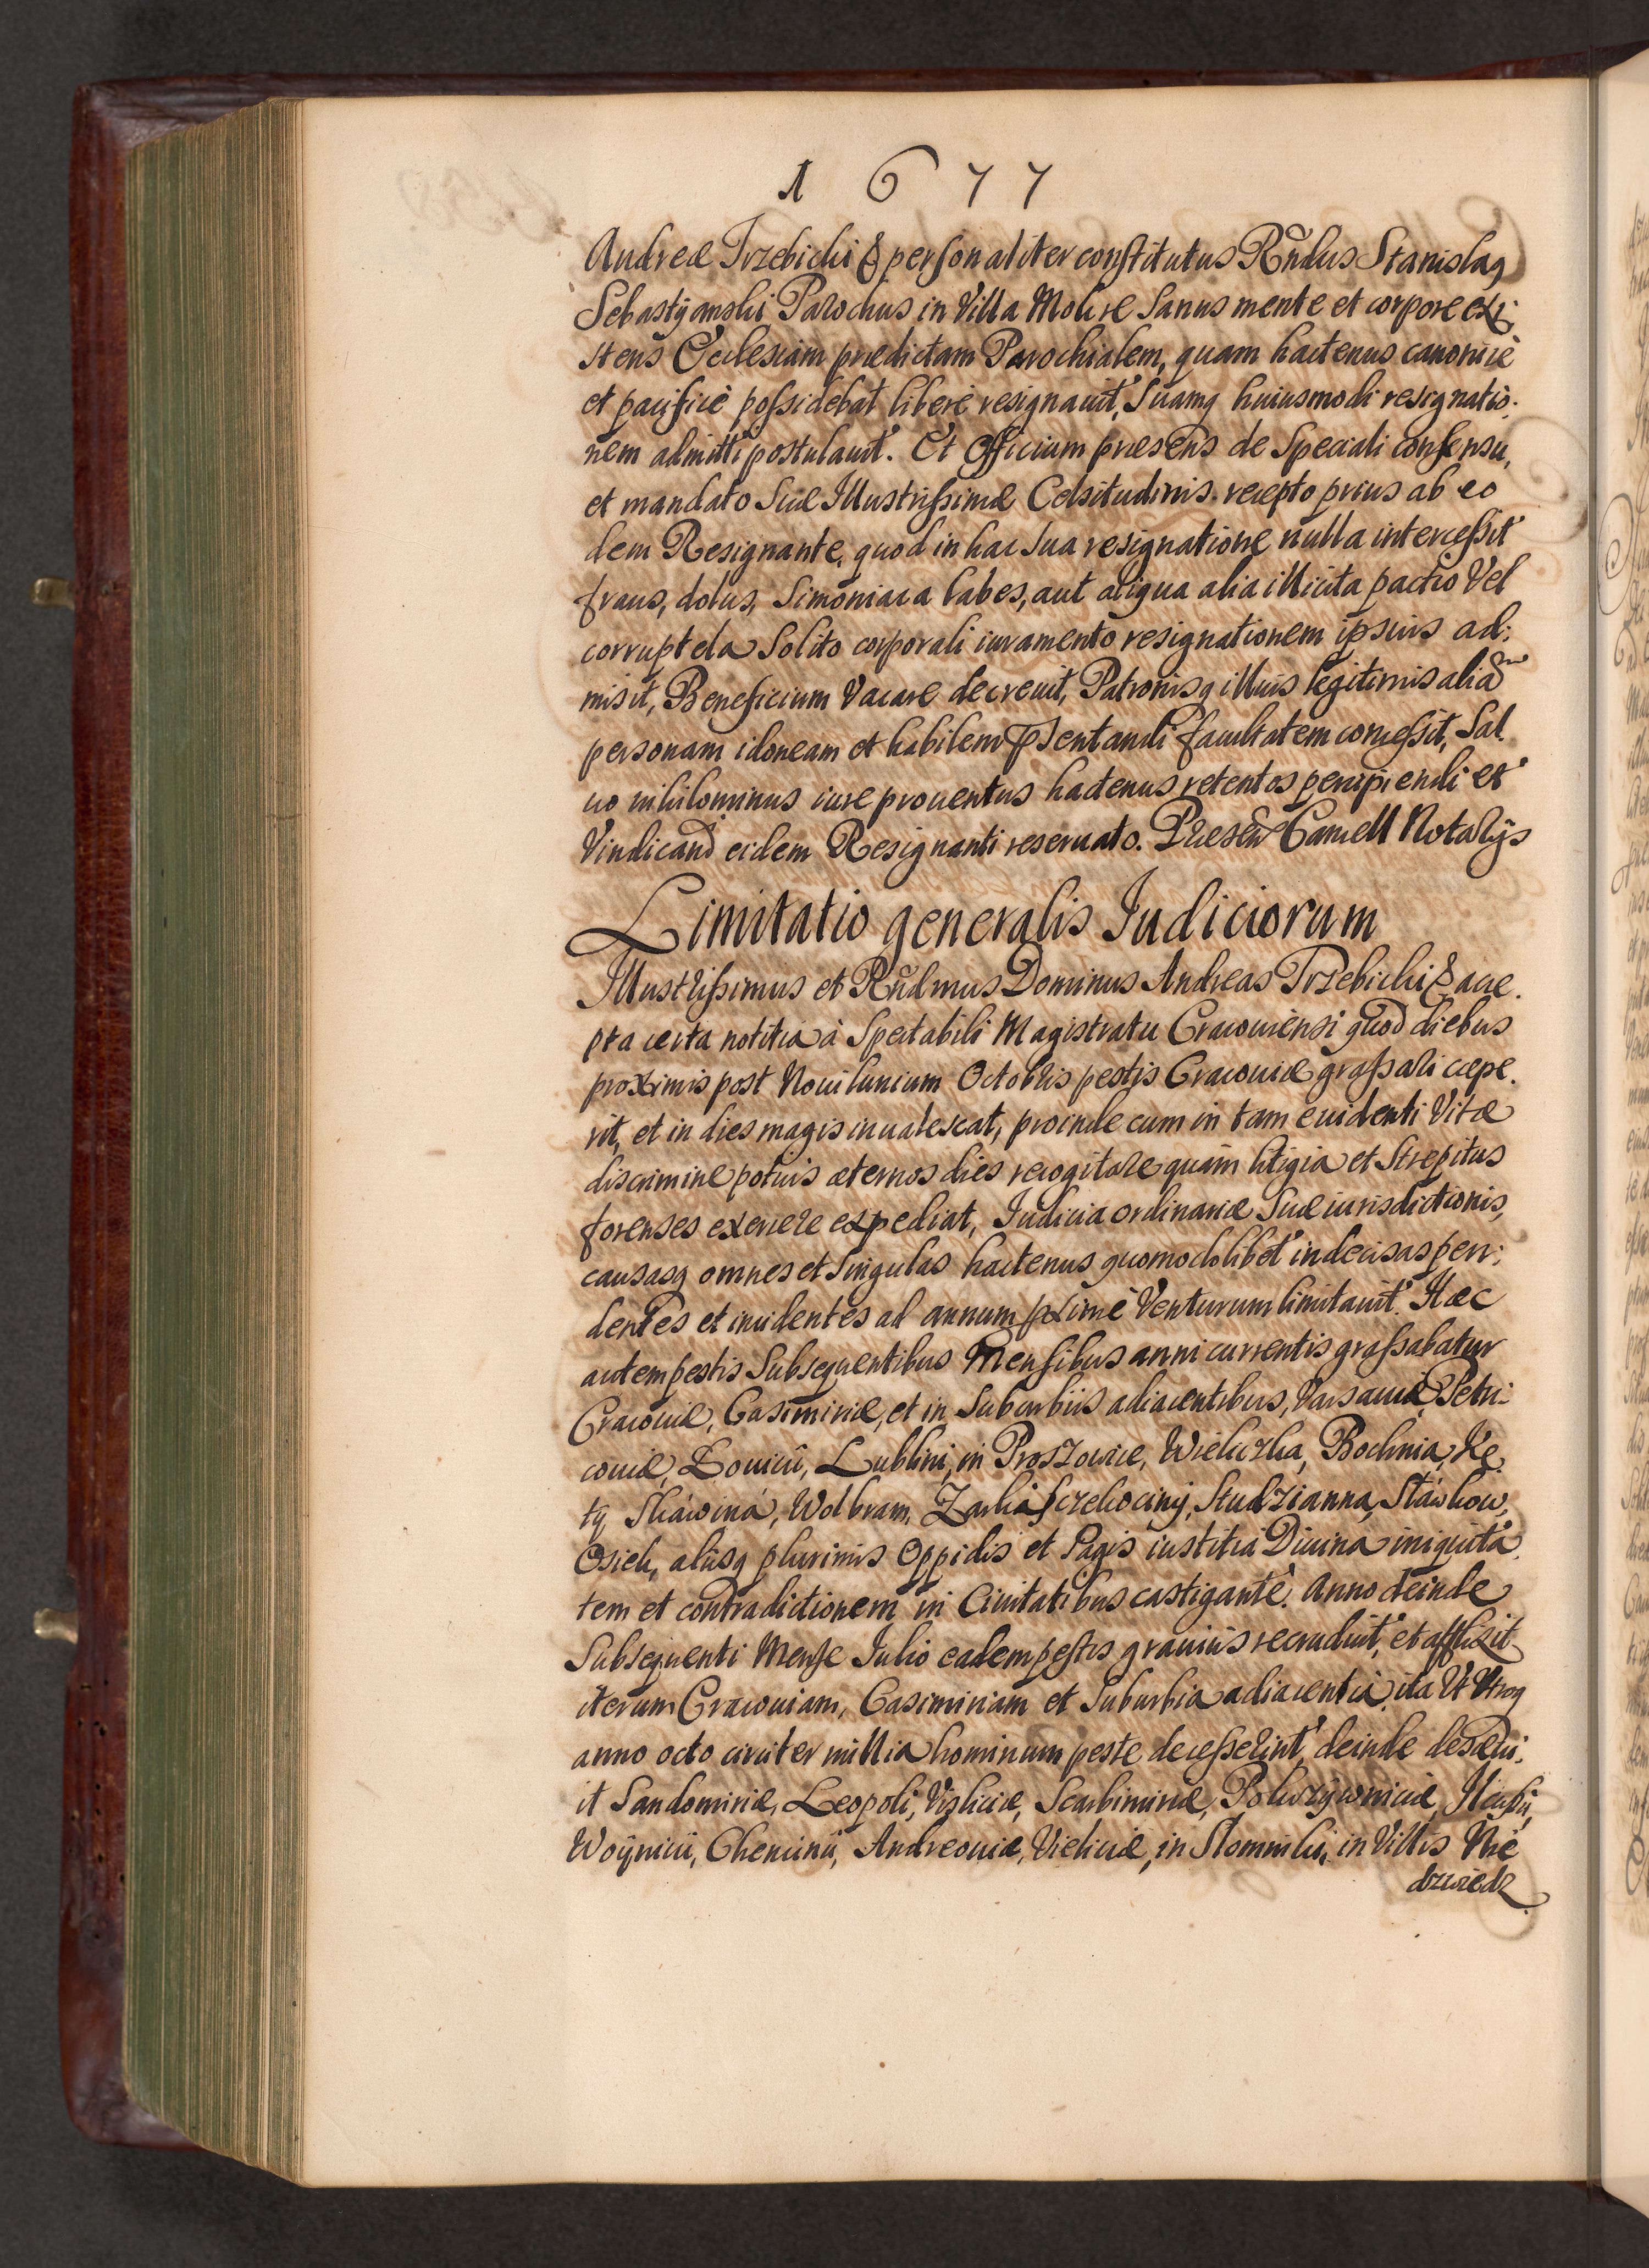 1677
Andreæ Trzebicki & personaliter constitutus Rñdus Stanislaq
Sebastyanski Parochus in Villa Mokre Sanus mente et corpore exi-
stens Ecclesiam prædictam Parochialem, quam hactenus canonicè
et pacificè possidebat liberè resignauit, Suamq huiusmodi resignatio-
nem admitti postulauit. Et Officium præsens de Speciali consensu,
et mandato Suæ Illustrissimæ Celsitudinis recepto prius ab eo
dem Resignante, quod in hac Sua resignatione nulla intercessit
fraus, dolus, Simoniaca labes, aut aliqua alia illicita pactio Vel
corruptela Solito corporali iuramento resignationem ipsius ad-
misit, Beneficium Vacare decreuit, Patronisq illius legitimis aliā
personam idoneam et habilem pSentandi facultatem concessit, Sal
uo nihilominus iure prouentus hactenus retentos percipiendi et
Vindicand eidem Resignanti reseruato. Præsen Cancell Notarys
Limitatio generalis Iudiciorum
Illustrissimus et Rñdmus Dominus Andreas Trzebicki & acce-
pta certa notitia à Spectabili Magistratu Cracouiensi quod diebus
proximis post Nouilunium Octobris pestis Cracouiæ grassari cæpe-
rit, et in dies magis inualescat, proinde cum in tam euidenti Vitæ
discrimine potius æternos dies recogitare quàm litigia et Strepitus
forenses exercere expediat, Iudicia ordinariæ Suæ iurisdictionis,
causasq omnes et Singulas hactenus quomodolibet indecisas pen-
dentes et incidentes ad annum pximè Venturum limitauit. Hæc
autem pestis Subsequentibus Mensibus anni currentis grassabatur
Cracouiæ, Casimiriæ, et in Suburbiis adiacentibus, Varsauiæ, Petri-
couiæ, Louicii, Lublini, in Proszowice, Wieliczka, Bochnia, Kę
ty, Skáwiná, Wolbram, Zarki Szczekociny, Studzianna, Stáwkow,
Osiek, aliisq plurimis Oppidis et Pagis iustitia Diuina iniquita
tem et contradictionem in Ciuitatibus castigante. Anno deinde
Subsequenti Mense Iulio eadem pestis grauius recruduit, et afflixit
iterum Cracouiam, Casimiriam et Suburbia adiacentia, ita Ut Utroq
anno octo circiter millia hominum peste decesserint, deinde desæui-
it Sandomiriæ, Leopoli, Visliciæ, Scarbimiriæ, Pokrzywniciæ, Ilcusii,
Woynicii, Chencinii, Andreouiæ, Vieliciæ, in Słomniki, in Villis Nie
dzwiedz